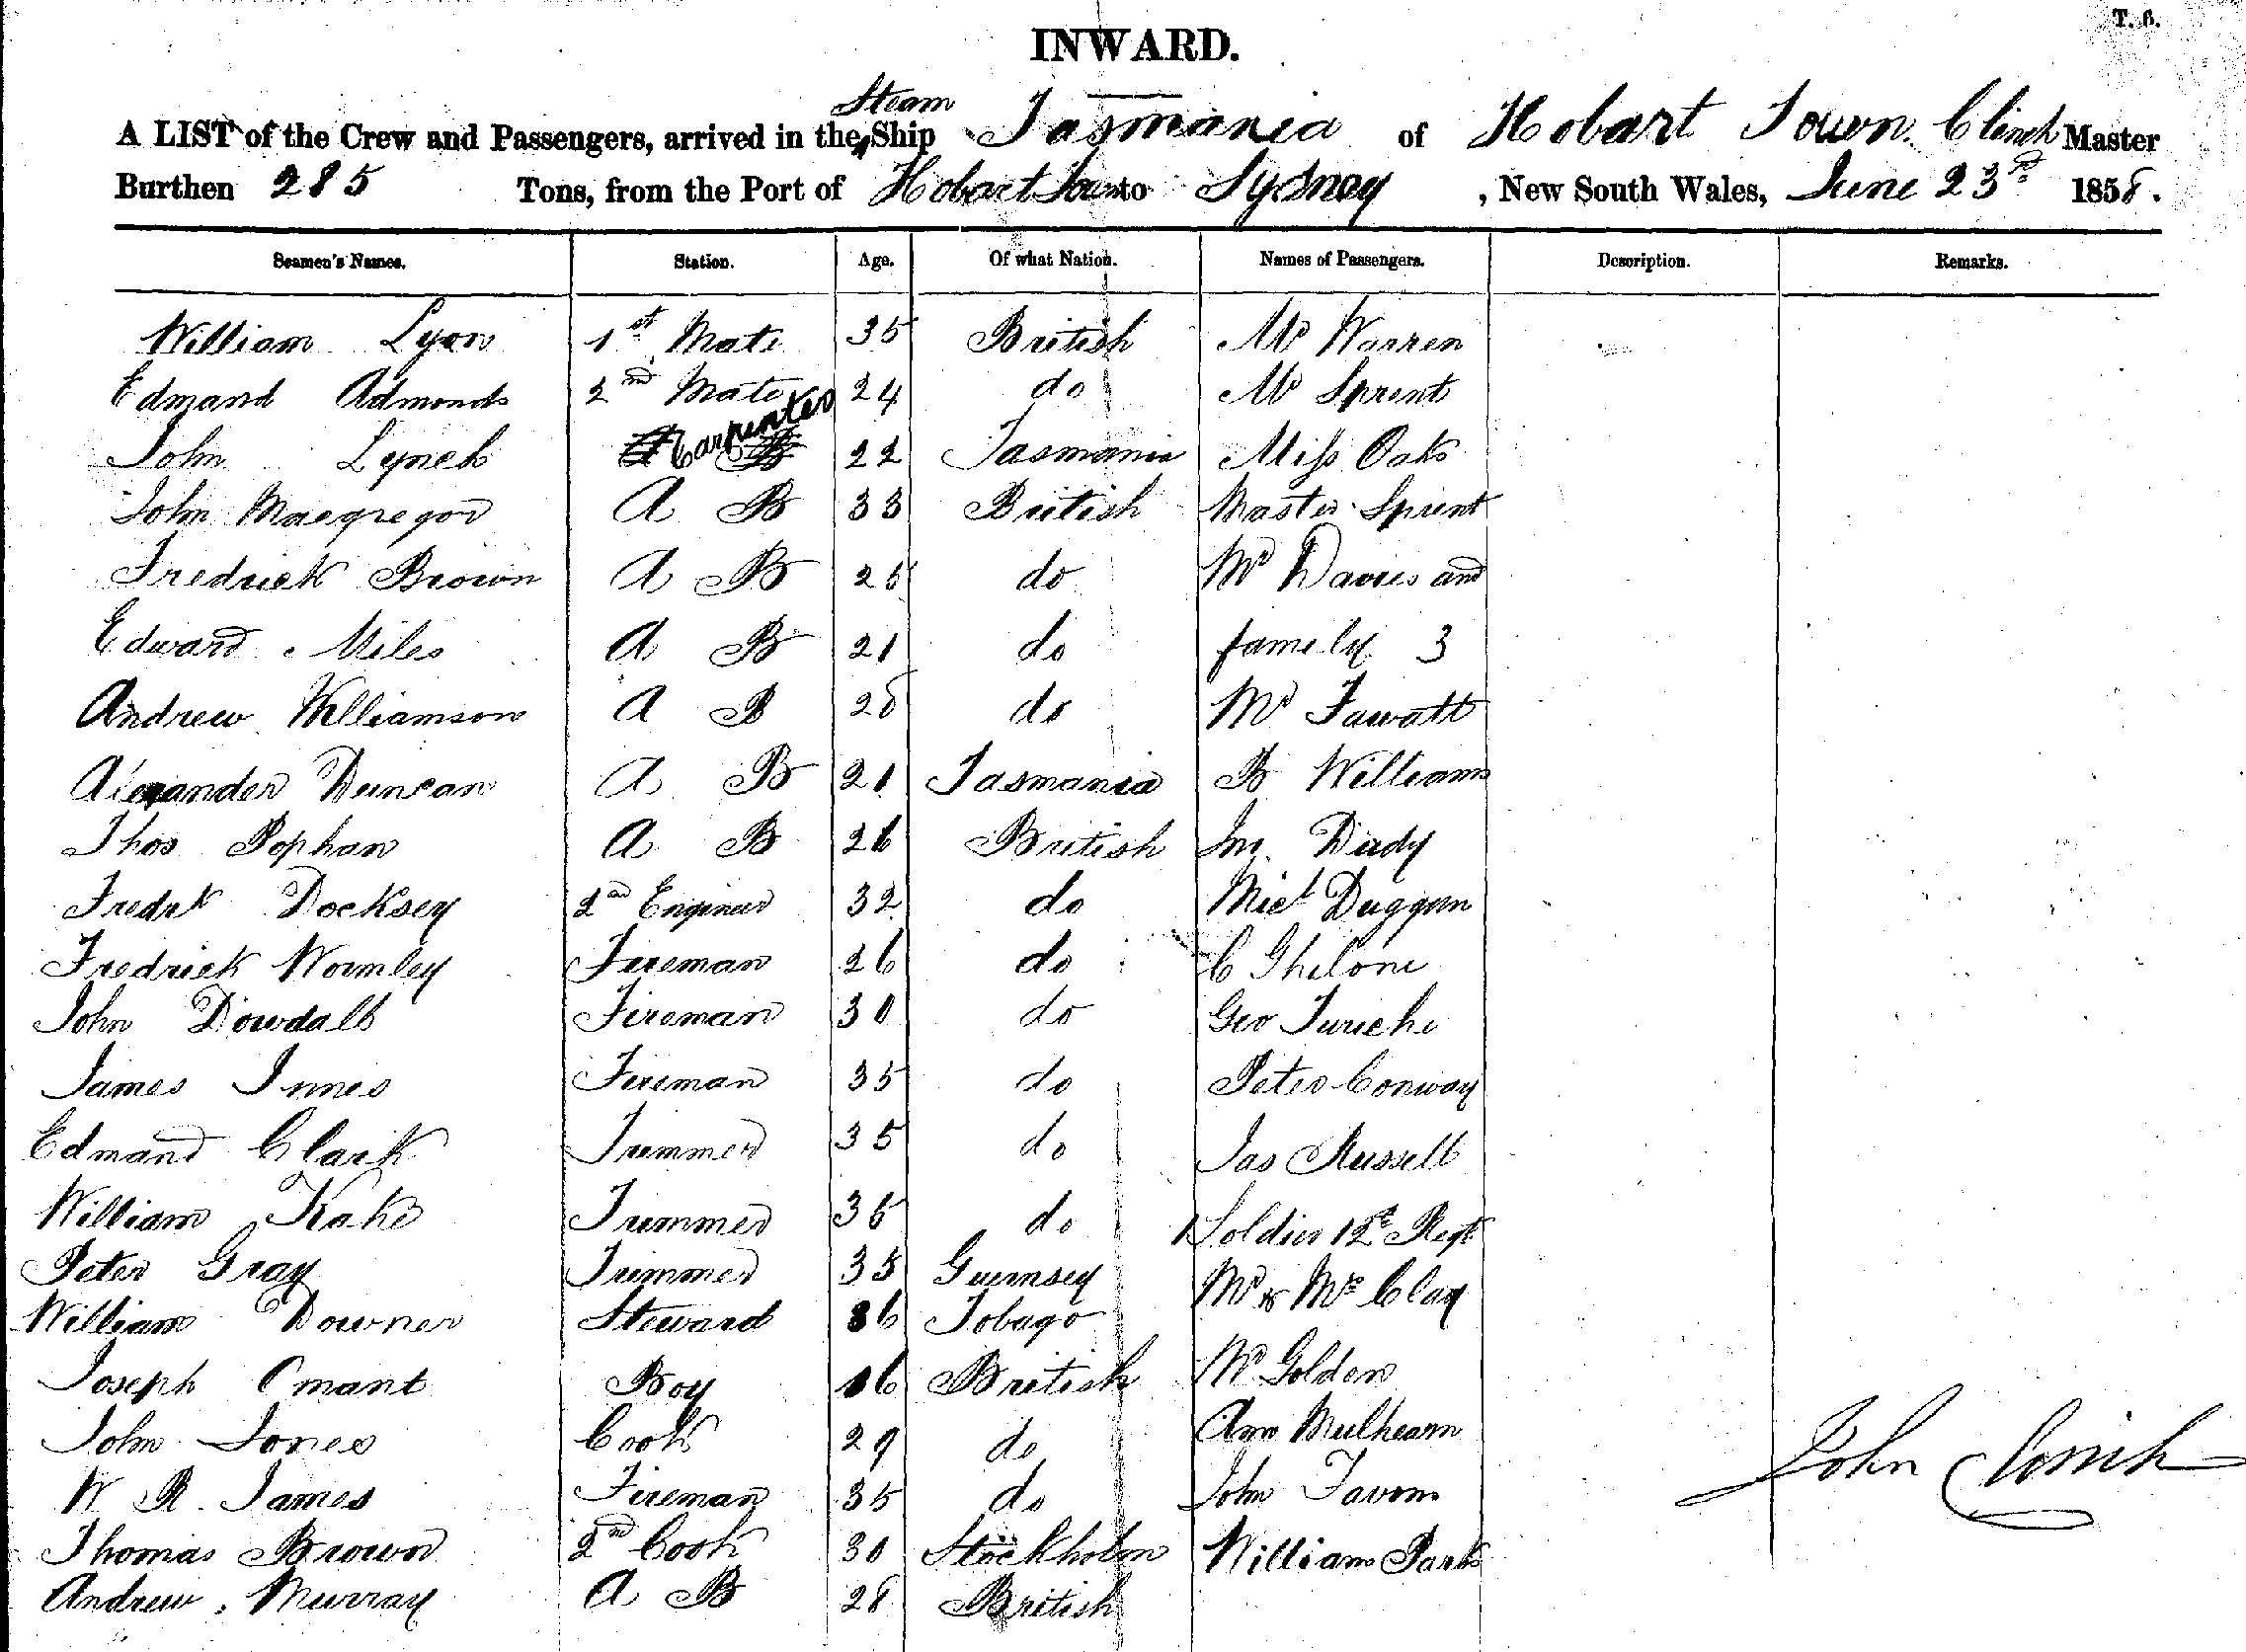 T. 6.
INWARD.
Steam
A LIST of the Crew and Passengers, arrived in the Ship Tasmania of Hobart Town. Clinch Master
Burthen 285 Tons, from the Port of Hobart Town to Sydney, New South Wales, June 23rd 1858.
Seamen's Names. Station. Age. Of what Nation. Names of Passengers. Description. Remarks.
William Lyon 1st Mate 35 British Mr Warren
Edmand Admonds 2nd Mate 24 do Mr Sprent
John Lynch Carpenter 22 Tasmania Miss Oaks
John Macgregor A B 33 British Master Sprent
Fredrick Brown A B 25 do Mr Davies and
Edward Miles A B 21 do family 3
Andrew Williamson A B 28 do Mr Fawatt
Alexander Duncan A B 21 Tasmania B Williams
Thos Pophan A B 26 British Dudy
Fredrk Docksey 2nd Engineer 32 do Micl Duggan
Fredrick Wormley Fireman 26 do C Ghiloni
John Dowdall Fireman 30 do Geo Turiche
James Innes Fireman 35 do Peter Conway
Edmand Clark Trimmer 35 do Jas Russell
William Kake Trimmer 36 do 1 Soldier 12th Regt
Peter Gray Trimmer 35 Guernsey Mr & Mrs Clay
William Downer Steward 36 Tobago
Joseph Omant Boy 16 British Mr Golden
John Jones Cook 29 do Ann Mulhearn
W R. James Fireman 35 do John Favom
Thomas Brown 2nd Cook 30 Stockholm William Parks
Andrew Murray A B 28 British
John Clinch